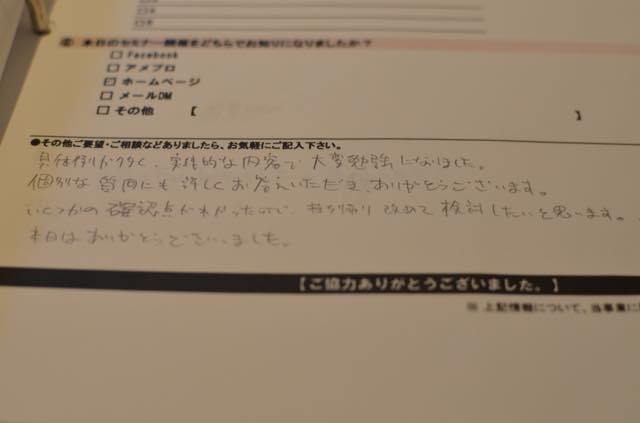 本日のセミナー開催をどちらでお知りになりましたか？
□ Facebook
□ アメブロ
☑ ホームページ
□ メールDM
□ その他 【 】
●その他ご要望・ご相談などありましたら、お気軽にご記入下さい。
具体例が多く、実践的な内容で大変勉強になりました。
個別な質問にも詳しくお答えいただき、ありがとうございます。
いくつかの確認点がわかったので、持ち帰り改めて検討したいと思います。
本日はありがとうございました。
【ご協力ありがとうございました。】
※ 上記情報について、当事業に